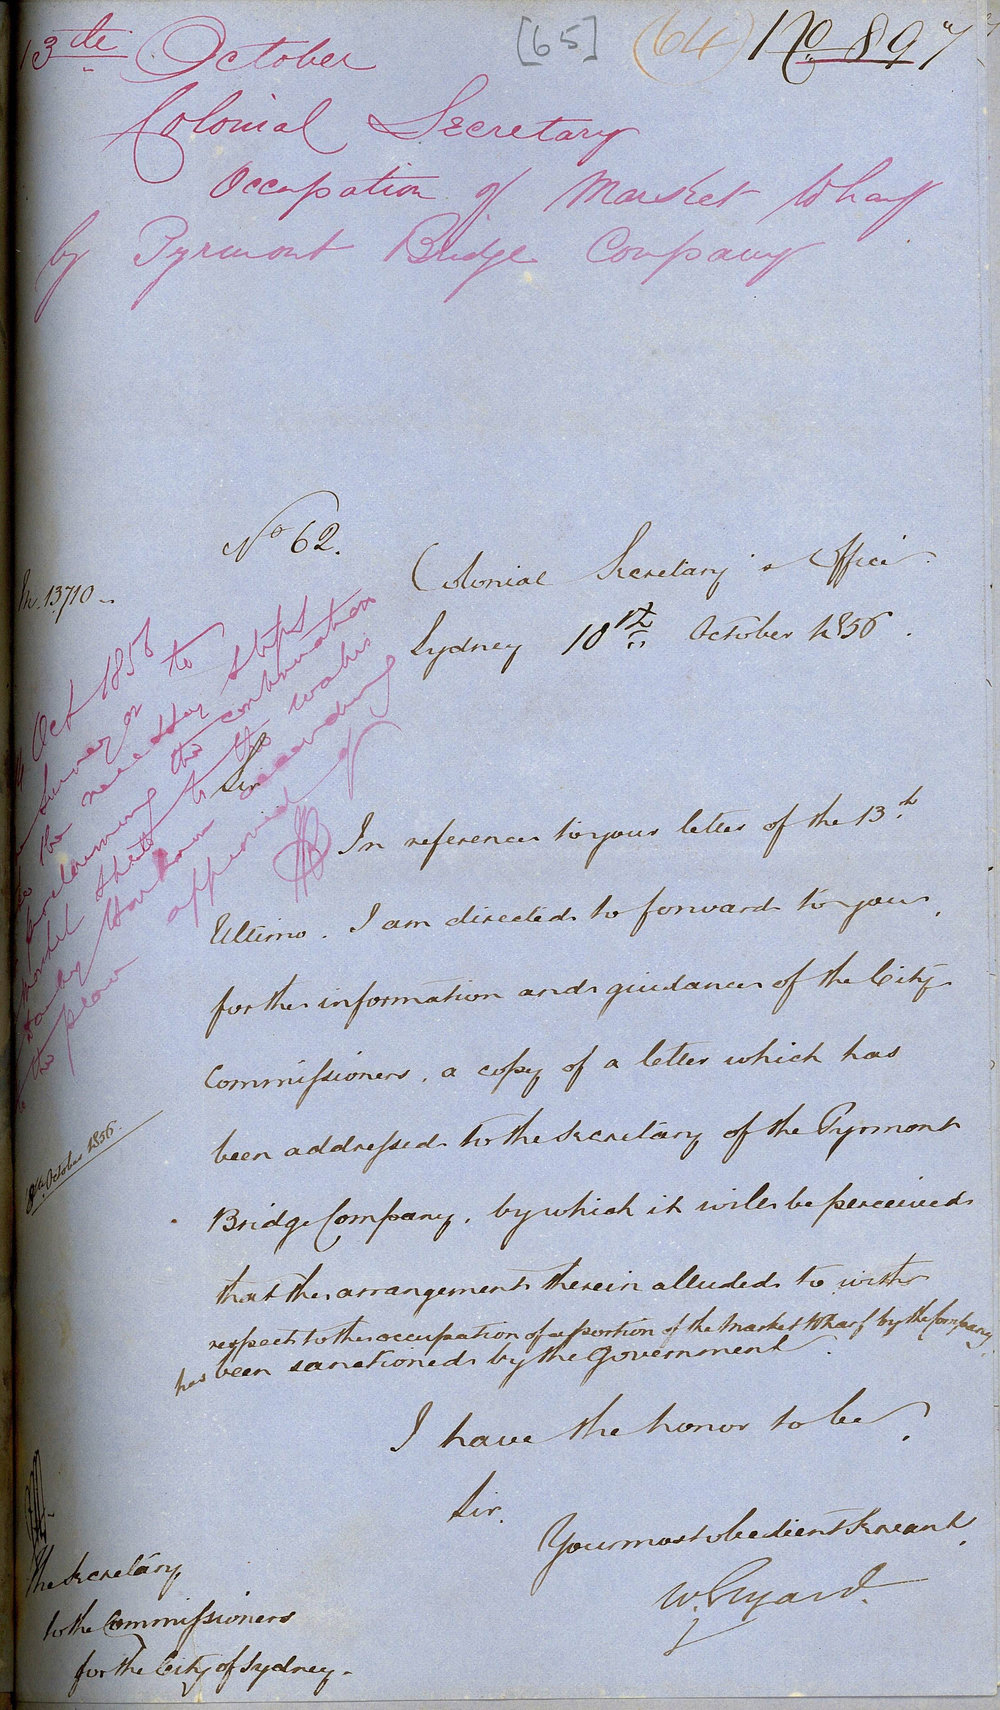 13th October
[65]
(64)
No. 897
Colonial Secretary
Occupation of Market Wharf
by Pyrmont Bridge Company
No 62.
13710
Colonial Secretary's Office
Sydney 10th October 1856.
Oct 1856
Surveyor to
the necessary steps
proclaiming the continuation
Market Street to the water
Harbour according
the plan approved of
Sir
In reference to your letter of the 13th
Ultimo. I am directed to forward to you,
for the information and guidance of the City
Commissioners, a copy of a letter which has
been addressed to the Secretary of the Pyrmont
Bridge Company, by which it will be perceived
that the arrangement therein alluded to with
respect to the occupation of a portion of the Market Wharf by the Company
has been sanctioned by the Government.
October 1856.
I have the honor to be,
Sir,
Your most obedient Servant,
W. Elyard.
The Secretary
to the Commissioners
for the City of Sydney.